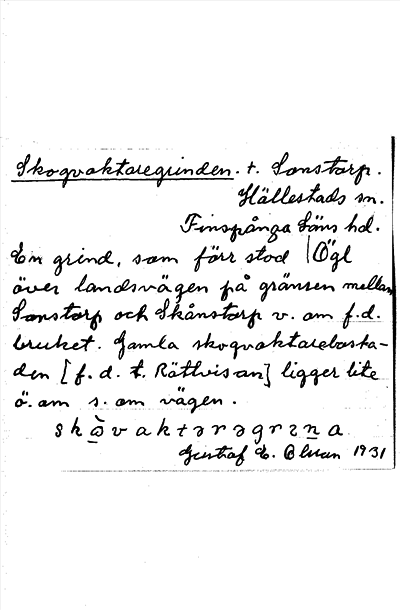 Skogvaktaregrinden. t. Sonstorp.
Hällestads sn.
Finspånga läns hd.
En grind, som förr stod | Ögl
över landsvägen på gränsen mellan
Sonstorp och Skånstorp v. om f.d.
bruket. Gamla skogvaktarebosta-
den [f. d. t. Rättvisan] ligger lite
ö. om s. om vägen.
Gustaf E. Olsson 1931